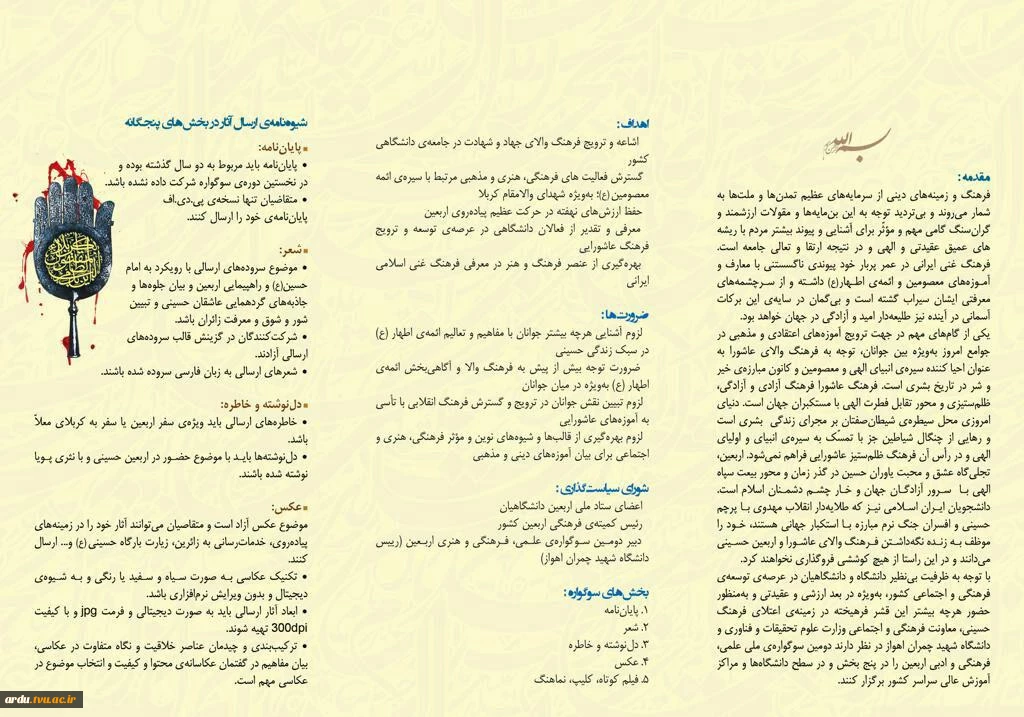 بسم الله
مقدمه:
فرهنگ و زمینه‌های دینی از سرمایه‌های عظیم تمدن‌ها و ملت‌ها به
شمار می‌روند و بی‌تردید توجه به این بن‌مایه‌ها و مقولات ارزشمند و
گران‌سنگ گامی مهم و مؤثّر برای آشنایی و پیوند بیشتر مردم با ریشه
های عمیق عقیدتی و الهی و در نتیجه ارتقا و تعالی جامعه است.
فرهنگ غنی ایرانی در عمر پربار خود پیوندی ناگسستنی با معارف و
آمـوزه‌های معصومین و ائمه‌ی اطـهار(ع) داشـته و از سـرچشمه‌های
معرفتی ایشان سیراب گشته است و بی‌گمان در سایه‌ی این برکات
آسمانی در آینده نیز طلیعه‌دار امید و آزادگی در جهان خواهد بود.
یکی از گام‌های مهم در جهت ترویج آموزه‌های اعتقادی و مذهبی در
جوامع امروز به‌ویژه بین جوانان، توجه به فرهنگ والای عاشورا به
عنوان احیا کننده سیره‌ی انبیای الهی و معصومین و کانون مبارزه‌ی خیر
و شر در تاریخ بشری است. فرهنگ عاشورا فرهنگ آزادی و آزادگی،
ظلم‌ستیزی و محور تقابل فطرت الهی با مستکبران جهان است. دنیای
امروزی محل سیطره‌ی شیطان‌صفتان بر مجرای زندگی بشری است
و رهایی از چنگال شیاطین جز با تمسّک به سیره‌ی انبیای و اولیای
الهی و در رأس آن فرهنگ ظلم‌ستیز عاشورایی فراهم نمی‌شود. اربعین،
تجلی‌گاه عشق و محبت یاوران حسین در گذر زمان و محور بیعت سپاه
الهی بـا سـرور آزادگـان جهان و خـار چشـم دشمـنان اسلام است.
دانشجویان ایـران اسـلامی نیـز که طلایه‌دار انقلاب مهدوی با پرچم
حسینی و افسران جنگ نرم مبارزه بـا استکبار جهانی هستند، خـود را
موظف بـه زنـده نگه‌داشتـن فـرهنگ والای عاشـورا و اربعین حسـینی
می‌دانند و در این راستا از هیچ کوششی فروگذاری نخواهند کرد.
با توجه به ظرفیت بی‌نظیر دانشگاه و دانشگاهیان در عرصه‌ی توسعه‌ی
فرهنگی و اجتماعی کشور، به‌ویژه در بعد ارزشی و عقیدتی و به‌منظور
حضور هرچه بیشتر این قشر فرهیخته در زمینه‌ی اعتلای فرهنگ
حسینی، معاونت فرهنگی و اجتماعی وزارت علوم تحقیقات و فناوری و
دانشگاه شهید چمران اهواز در نظر دارند دومین سوگواره‌ی ملی علمی،
فرهنگی و ادبی اربعین را در پنج بخش و در سطح دانشگاه‌ها و مراکز
آموزش عالی سراسر کشور برگزار کنند.
اهداف:
اشاعه و ترویج فرهنگ والای جهاد و شهادت در جامعه‌ی دانشگاهی
کشور
گسترش فعالیت های فرهنگی، هنری و مذهبی مرتبط با سیره‌ی ائمه
معصومین(ع)؛ به‌ویژه شهدای والامقام کربلا
حفظ ارزش‌های نهفته در حرکت عظیم پیاده‌روی اربعین
معرفی و تقدیر از فعالان دانشگاهی در عرصه‌ی توسعه و ترویج
فرهنگ عاشورایی
بهره‌گیری از عنصر فرهنگ و هنر در معرفی فرهنگ غنی اسلامی
ایرانی
ضرورت‌ها:
لزوم آشنایی هرچه بیشتر جوانان با مفاهیم و تعالیم ائمه‌ی اطهار (ع)
در سبک زندگی حسینی
ضرورت توجه بیش از پیش به فرهنگ والا و آگاهی‌بخش ائمه‌ی
اطهار (ع) به‌ویژه در میان جوانان
لزوم تبیین نقش جوانان در ترویج و گسترش فرهنگ انقلابی با تأسی
به آموزه‌های عاشورایی
لزوم بهره‌گیری از قالب‌ها و شیوه‌های نوین و مؤثر فرهنگی، هنری و
اجتماعی برای بیان آموزه‌های دینی و مذهبی
شورای سیاست‌گذاری:
اعضای ستاد ملی اربعین دانشگاهیان
رئیس کمیته‌ی فرهنگی اربعین کشور
دبیر دومـین سـوگواره‌ی علـمی، فـرهنگی و هنری اربـعین (رییس
دانشگاه شهید چمران اهواز)
بخش‌های سوگواره:
۱. پایان‌نامه
۲. شعر
۳. دل‌نوشته و خاطره
۴. عکس
۵. فیلم کوتاه، کلیپ، نماهنگ
شیوه‌نامه‌ی ارسال آثار در بخش‌های پنجگانه
▪ پایان‌نامه:
• پایان‌نامه باید مربوط به دو سال گذشته بوده و
در نخستین دوره‌ی سوگواره شرکت داده نشده باشد.
• متقاضیان تنها نسخه‌ی پی.دی.اف
پایان‌نامه‌ی خود را ارسال کنند.
▪ شعر:
• موضوع سروده‌های ارسالی با رویکرد به امام
حسین(ع) و راهپیمایی اربعین و بیان جلوه‌ها و
جاذبه‌های گردهمایی عاشقان حسینی و تبیین
شور و شوق و معرفت زائران باشد.
• شرکت‌کنندگان در گزینش قالب سروده‌های
ارسالی آزادند.
• شعرهای ارسالی به زبان فارسی سروده شده باشند.
▪ دل‌نوشته و خاطره:
• خاطره‌های ارسالی باید ویژه‌ی سفر اربعین یا سفر به کربلای معلاّ
باشد.
• دل‌نوشته‌ها بایـد با موضوع حضـور در اربعین حسینی و با نثری پـویا
نوشته شده باشند.
▪ عکس:
موضوع عکس آزاد است و متقاضیان می‌توانند آثار خود را در زمینه‌های
پیاده‌روی، خدمات‌رسانی به زائرین، زیارت بارگاه حسینی(ع) و... ارسال
کنند.
• تکنیک عکاسی بـه صورت سـیاه و سـفید یا رنگی و بـه شـیوه‌ی
دیجیتال و بدون ویرایش نرم‌افزاری باشد.
• ابعاد آثار ارسالی باید به صورت دیجیتالی و فرمت jpg و با کیفیت
300dpi تهیه شوند.
• ترکیب‌بندی و چیدمان عناصر خلاقیت و نگاه متفاوت در عکاسی،
بیان مفاهیم در گفتمان عکاسانه‌ی محتوا و کیفیت و انتخاب موضوع در
عکاسی مهم است.
ardu.tvu.ac.ir